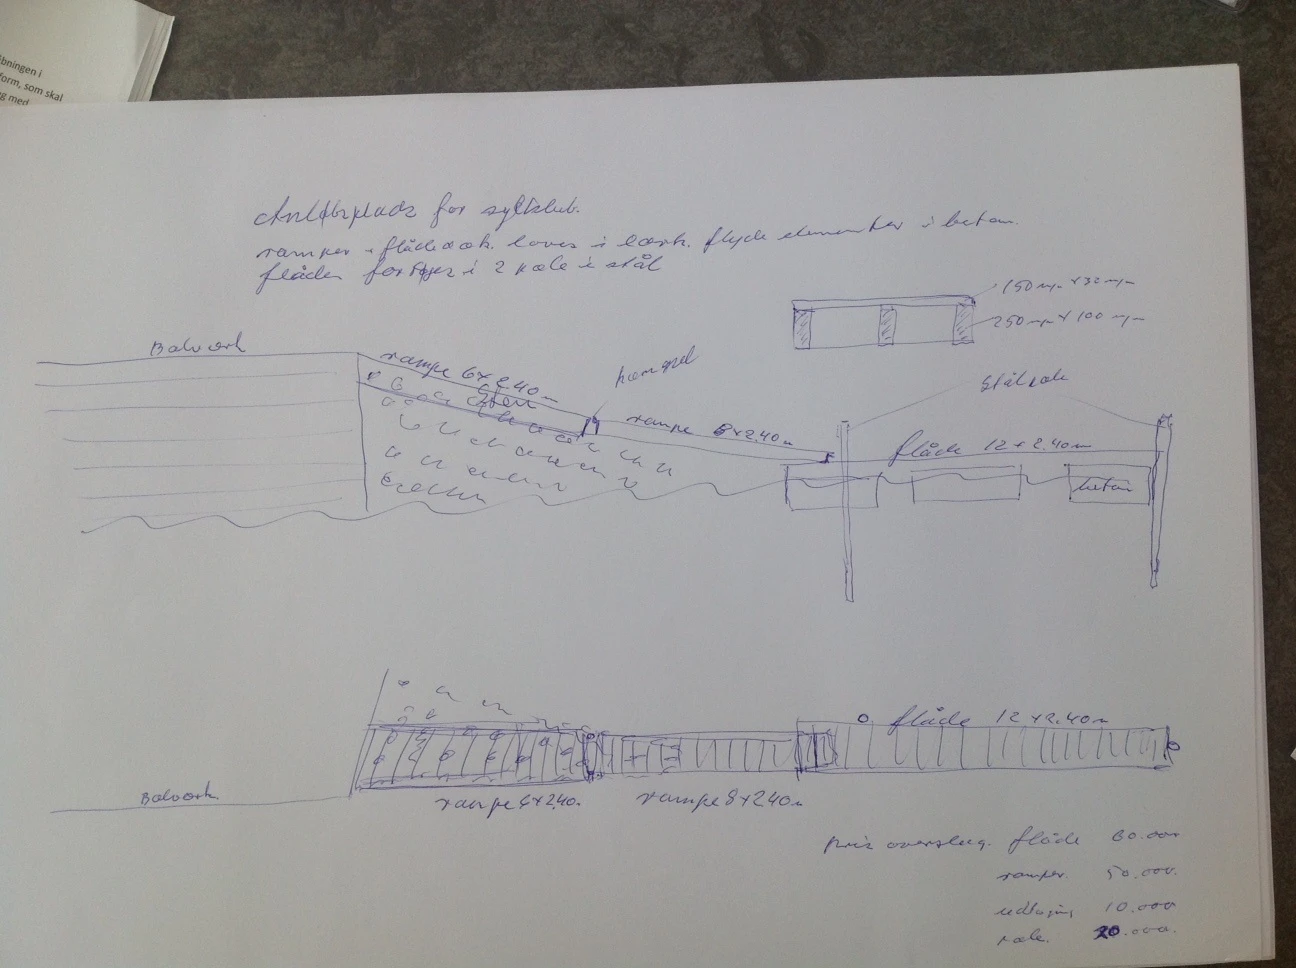 åbningen i
form, som skal
og med
for
ramper flyde elementer i beton.
flåden i 2 pæle i stål
150 mm x 32 mm
250 mm x 100 mm
Bolværk
rampe 6 x 2.40 m
Sten
hængsel
Stålpæle
rampe 8 x 2.40 m
flåde 12 x 2.40 m
beton
flåde 12 x 2.40 m
Bolværk
rampe 6 x 2.40
rampe 8 x 2.40 m
pris overslag. flåde 60.000
ramper. 50.000.
10.000
pæle. 20.000.